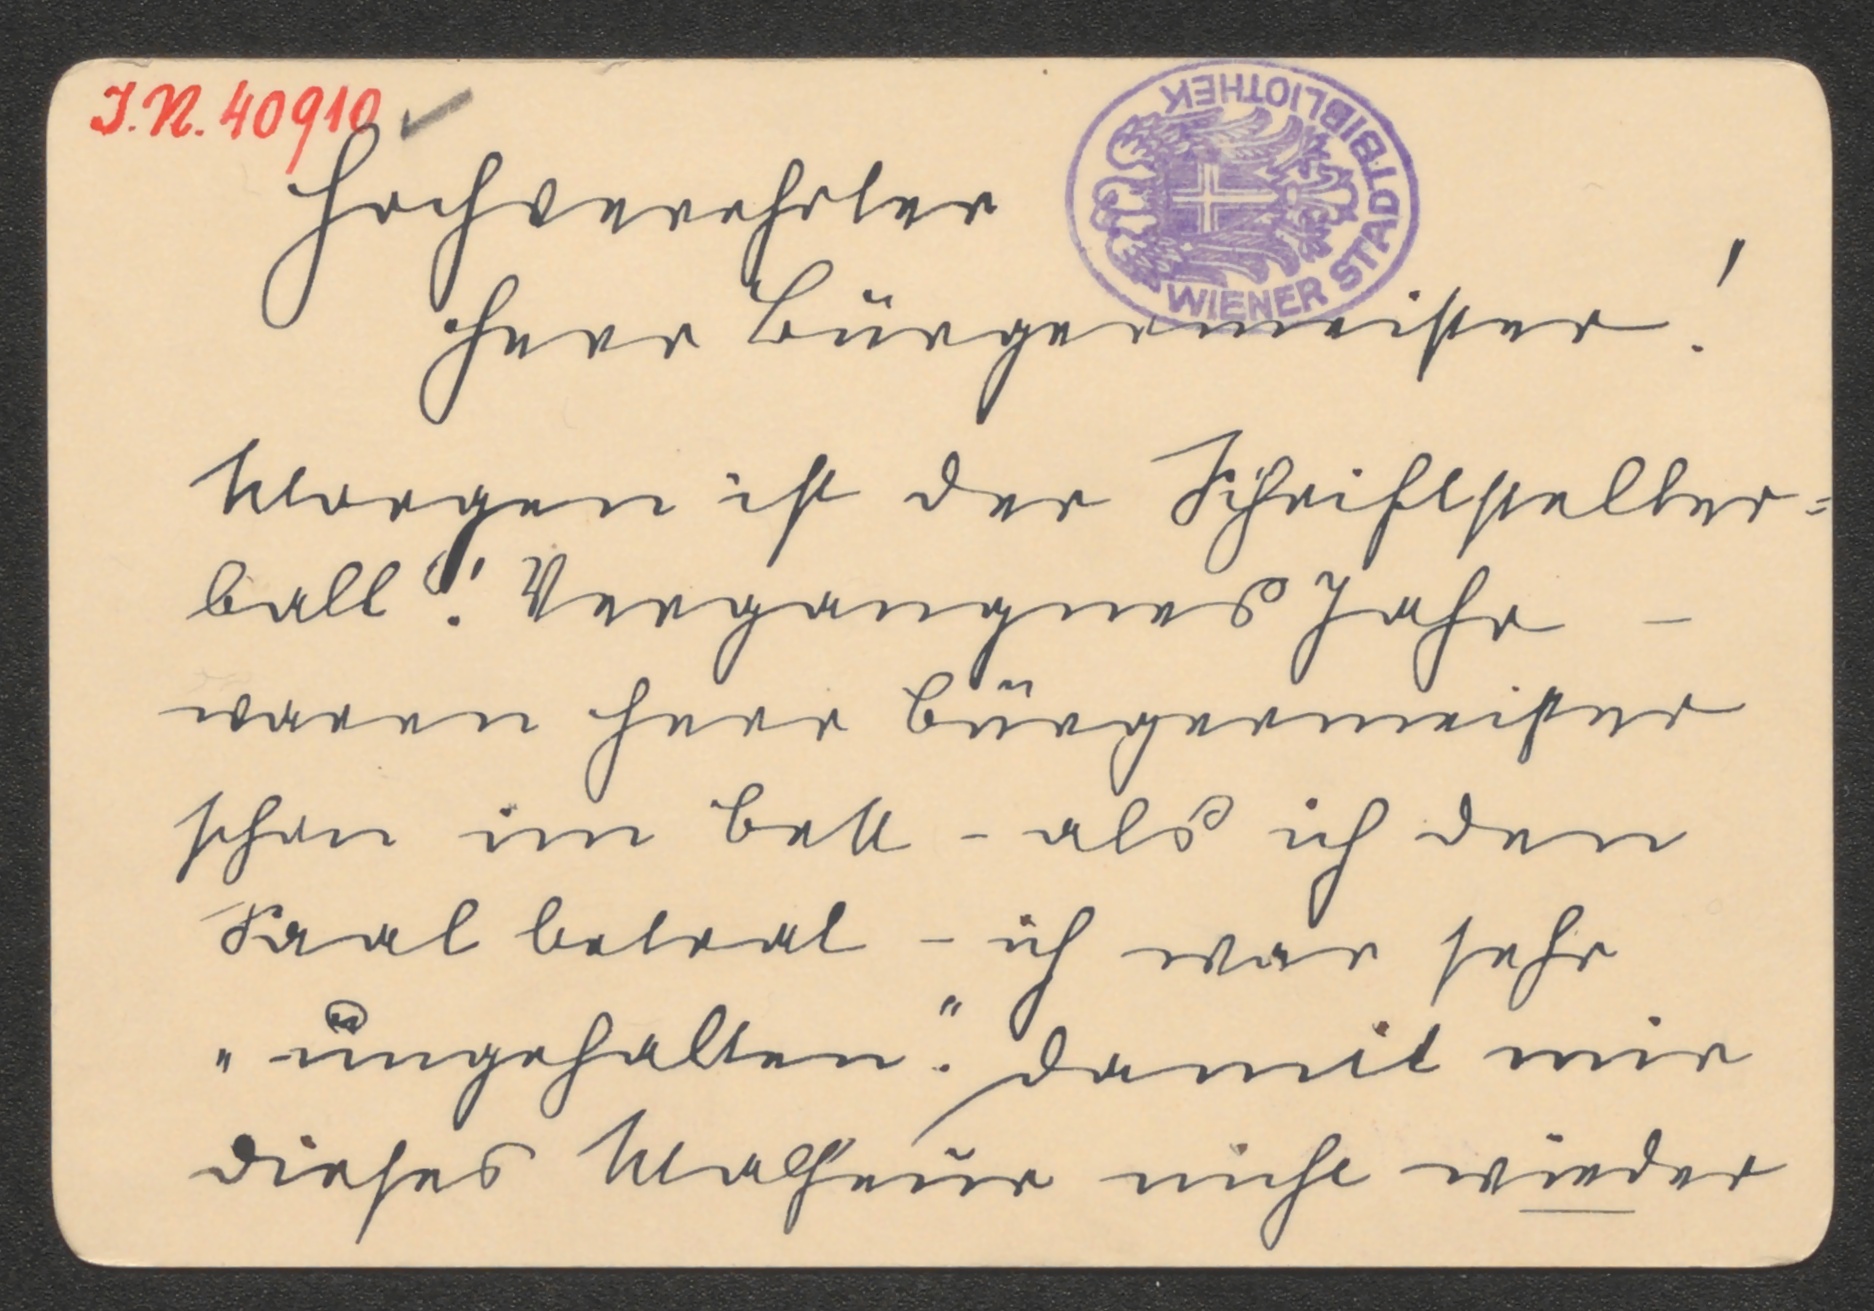 J.N. 40910
WIENER STADTBIBLIOTHEK
Hochverehrter
Herr Bürgermeister!
Morgen ist der Schriftsteller=
ball"! Vergangnes Jahr –
waren Herr Bürgermeister
schon im Bett – als ich den
Saal betrat – ich war sehr
„ungehalten." Damit mir
dieses Malheur nicht wieder